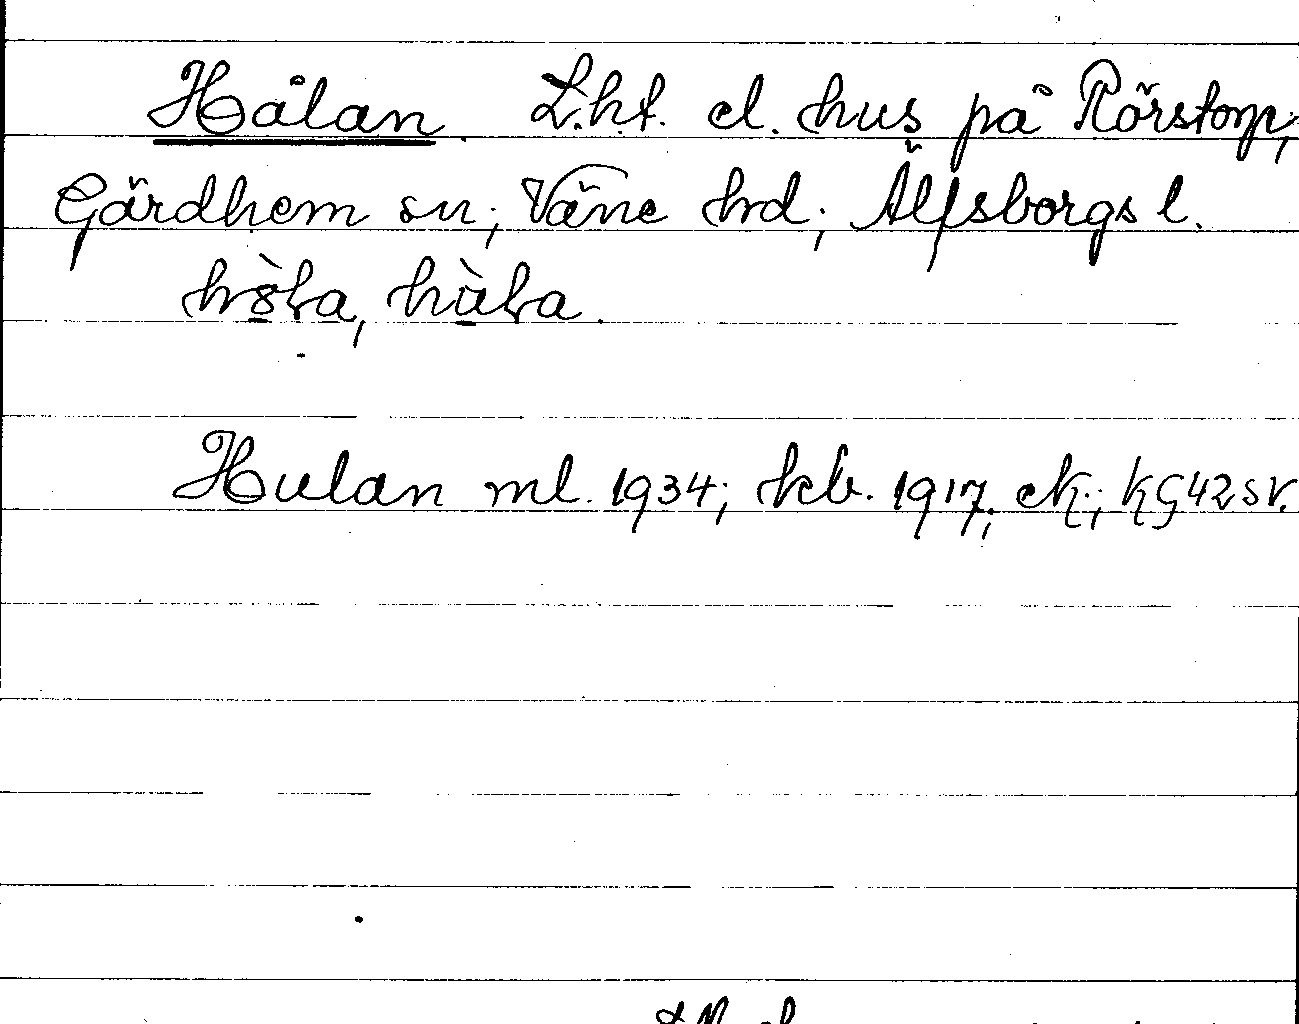 Hålan. L.ht. el. hus på Rörstorp,
Gärdhem sn; Väne hd; Älfsborgs l.
Hulan ml. 1934; kb. 1917; ek.; kG42sv.